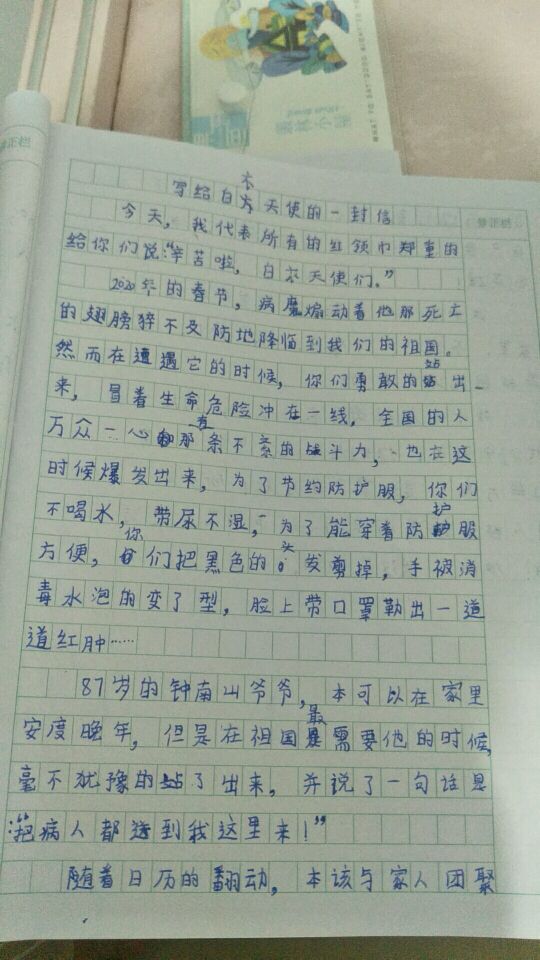 写给白衣天使的一封信
今天，我代表所有的红领巾郑重的
给你们说：“辛苦啦，白衣天使们。”
2020年的春节，病魔煽动着他那死亡
的翅膀猝不及防地降临到我们的祖国。
然而在遭遇它的时候，你们勇敢的站出
来，冒着生命危险冲在一线，全国的人
万众一心和那条不紊的战斗力，也在这
时候爆发出来，为了节约防护服，你们
不喝水，带尿不湿，为了能穿着防护服
方便，你们把黑色的头发剪掉，手被消
毒水泡的变了型，脸上带口罩勒出一道
道红肿……
87岁的钟南山爷爷，本可以在家里
安度晚年，但是在祖国最需要他的时候，
毫不犹豫的站了出来，并说了一句话是
：“把病人都送到我这里来！”
随着日历的翻动，本该与家人团聚